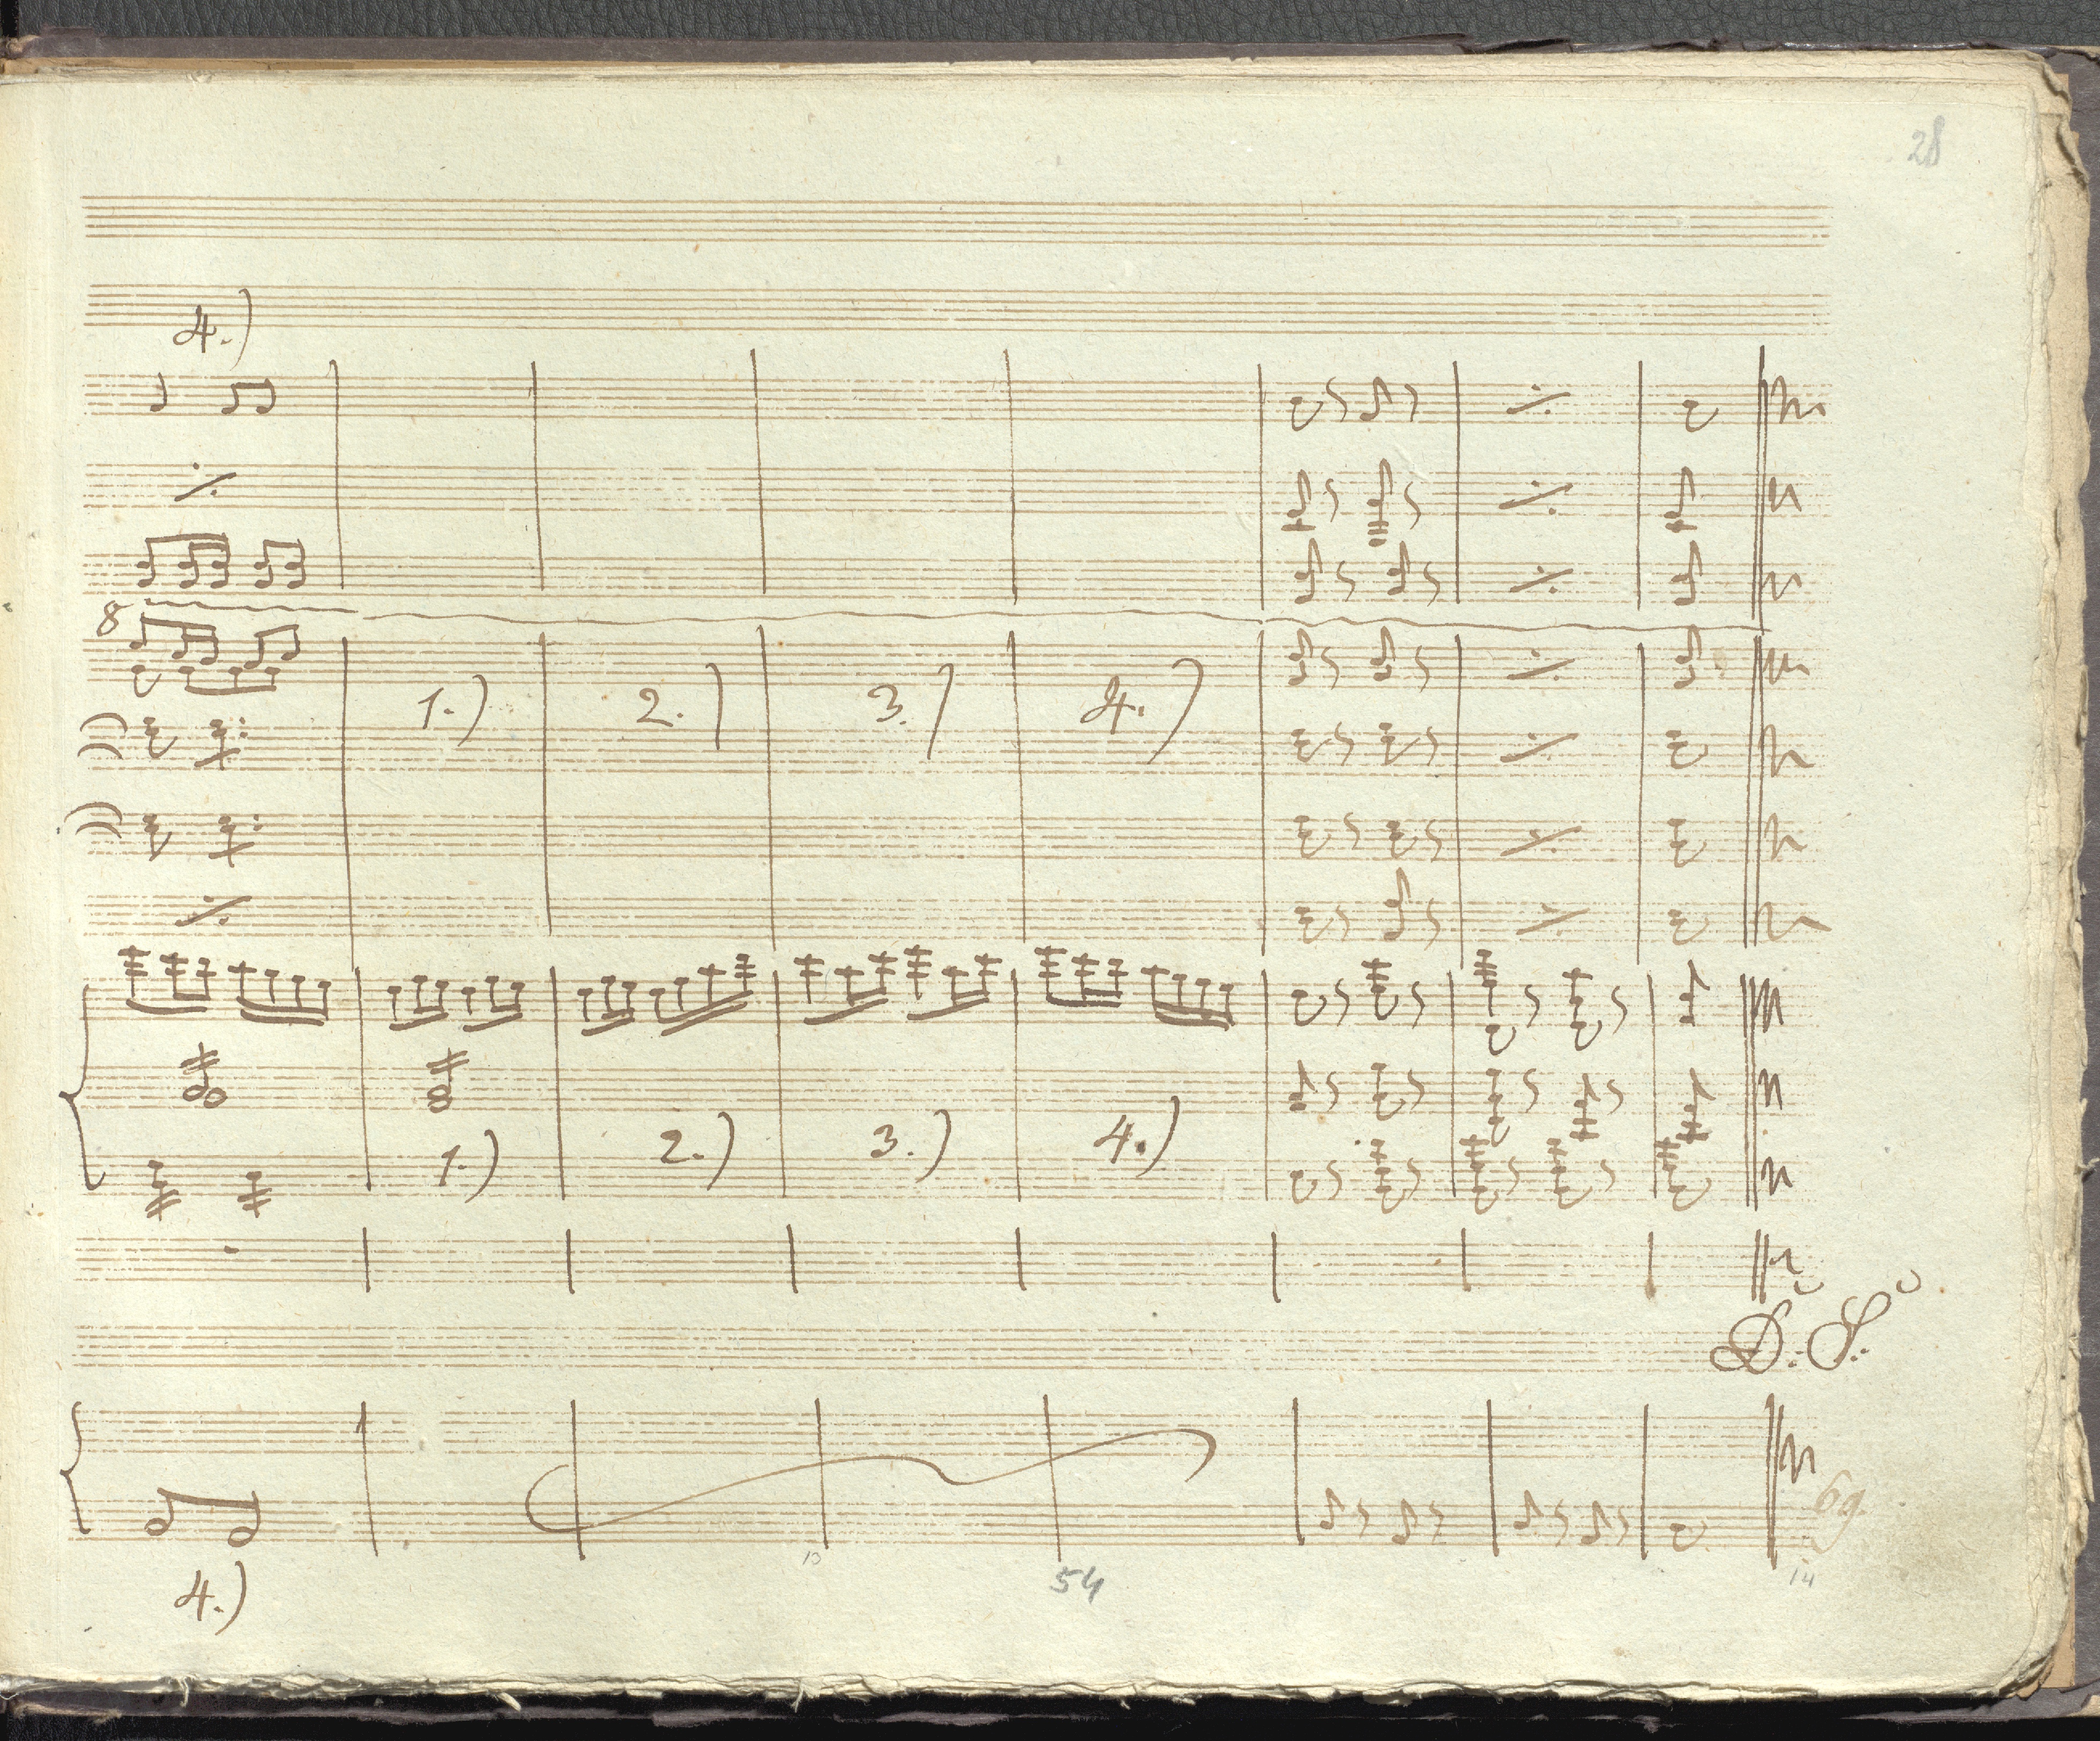 28
4.)
8
1.) 2.) 3.) 4.)
1.) 2.) 3.) 4.)
D. S.
69
10 54 14
4.)